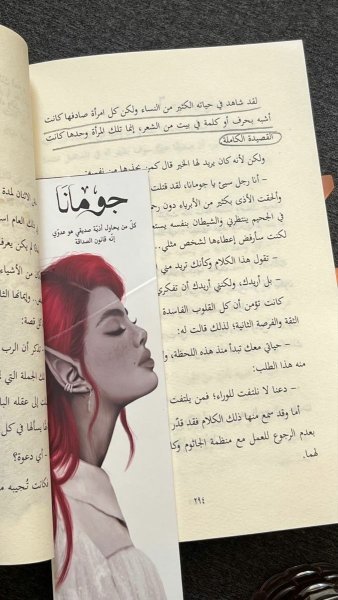 لقد شاهد في حياته الكثير من النساء ولكن كل امرأة صادفها كانت
أشبه بحرف أو كلمة في بيت من الشعر، إنما تلك المرأة وحدها كانت
القصيدة الكاملة
ولكن لأنه كان يريد لها الخير قال كمن يحذرها من نفسه:
- أنا رجل سيئ يا جومانا، لقد قتلت
وألحقت الأذى بكثير من الأبرياء دون رحمة
في الجحيم ينتظرني والشيطان بنفسه يستعد
لكنت سأرفض إعطاءها لشخص مثلي.
- تقول هذا الكلام وكأنك تريد مني
- بل أريدك، ولكنني أريدك أن تفكري
كانت تؤمن أن كل القلوب الفاسدة
الثقة والفرصة الثانية؛ لذلك قالت له:
- حياتي معك تبدأ منذ هذه اللحظة،
منه هذا الطلب:
- دعنا لا نلتفت للوراء؛ فمن يلتفت
أما وقد سمع منها ذلك الكلام فقد قدّر
بعدم الرجوع للعمل مع منظمة الجاثوم
لهما.
٢٩٤
جومانا
كل من يحاول أذيّة صديقي هو عدوّي
إنّه قانون الصداقة
لمدة
العام
لم يكن يعرف
من الأشياء
قصة:
تذكر أن الرب
الجملة التي
إلى عقله
في كل
- أي دعوة؟
فكانت تُجيبه